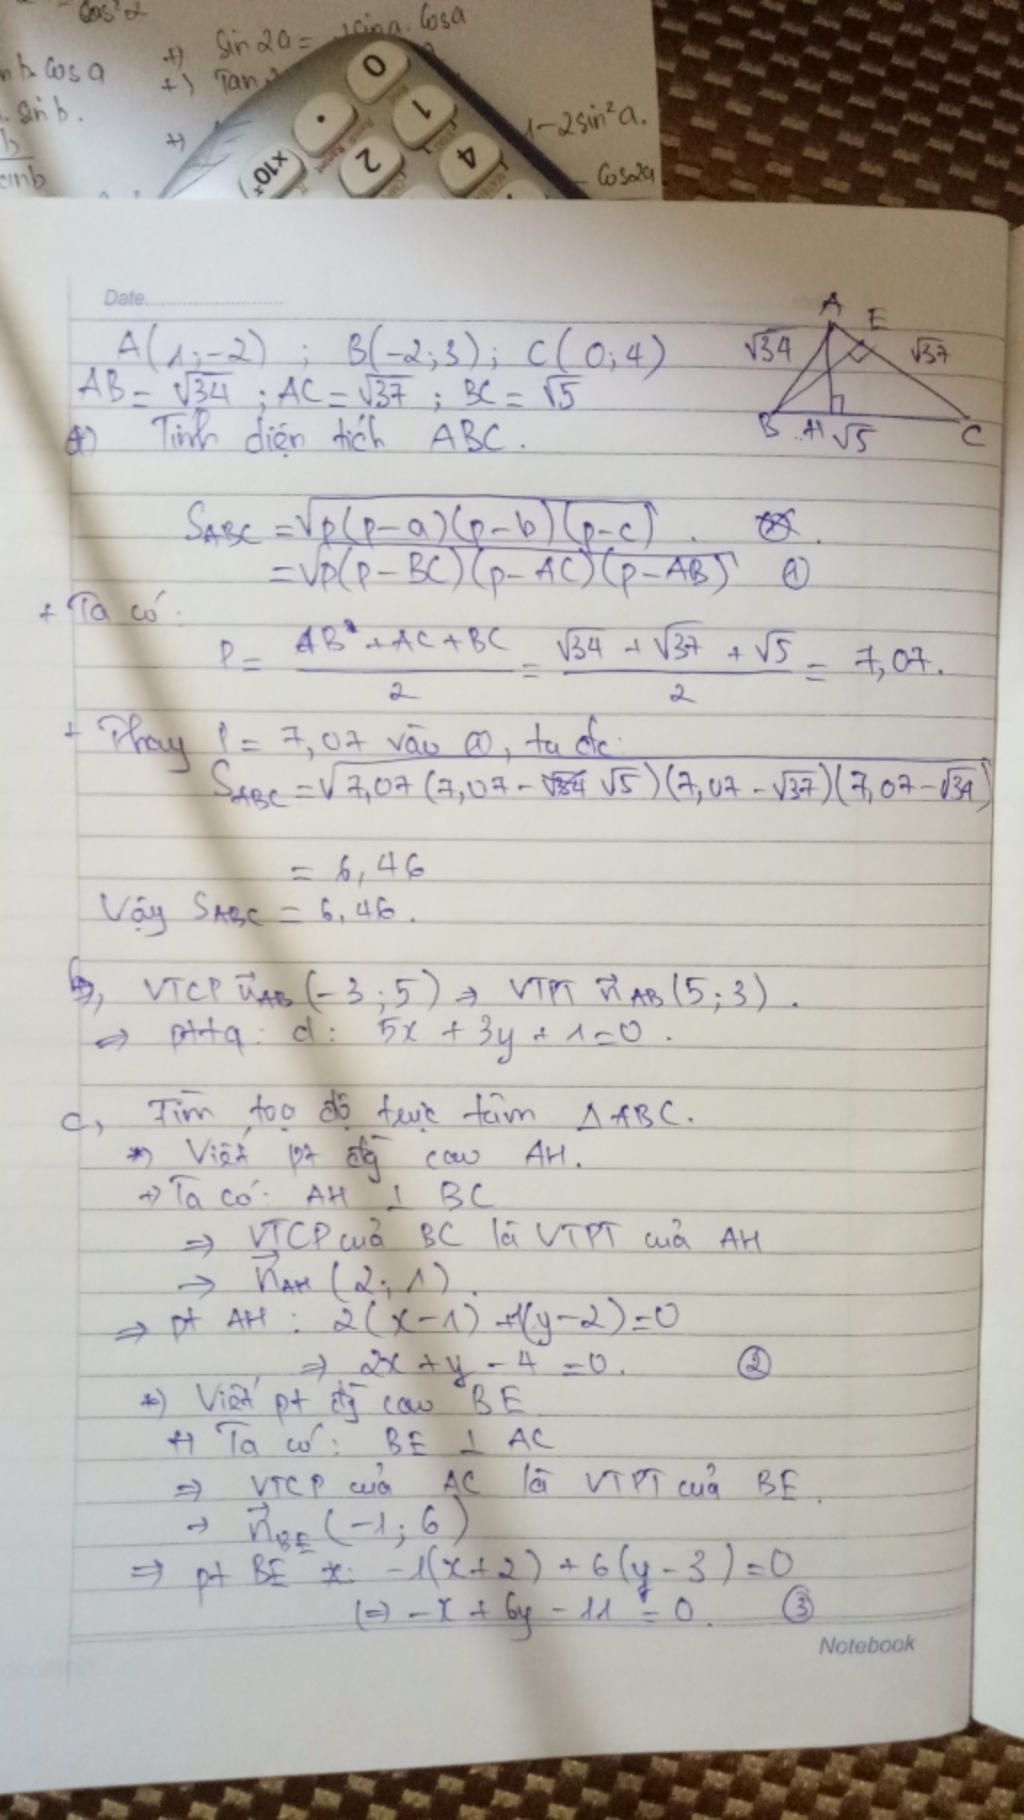 cos²2
+) sin 2a = 2sina.cosa
b.cosa
+) Tan
.sinb.
+)
1-2sin²a.
cos2a
0
.
1
×10ˣ
2
4
Date
A
E
√34
√37
B
H
√5
C
A(1;-2) ; B(-2;3) ; C(0;4)
AB = √34 ; AC = √37 ; BC = √5
a) Tính diện tích ABC.
S_ABC = √p(p-a)(p-b)(p-c) .
= √p(p-BC)(p-AC)(p-AB) ①
+ Ta có:
P = (AB + AC + BC)/2 = (√34 + √37 + √5)/2 = 7,07.
+ Thay P = 7,07 vào ①, ta đc:
S_ABC = √7,07(7,07-√5)(7,07-√37)(7,07-√34)
= 6,46
Vậy S_ABC = 6,46.
b, VTCP u_AB(-3;5) => VTPT n_AB(5;3).
=> pttq: d: 5x + 3y + 1 = 0.
c, Tìm toạ độ trực tâm ΔABC.
*) Viết pt đg cao AH.
+) Ta có: AH ⊥ BC
=> VTCP của BC là VTPT của AH
=> n_AH(2;1).
=> pt AH : 2(x-1)+1(y-2)=0
=> 2x+y-4=0. ②
*) Viết pt đg cao BE
+) Ta có: BE ⊥ AC
=> VTCP của AC là VTPT của BE.
-> n_BE(-1;6)
=> pt BE : -1(x+2)+6(y-3)=0
(=) -x+6y-11=0. ③
Notebook